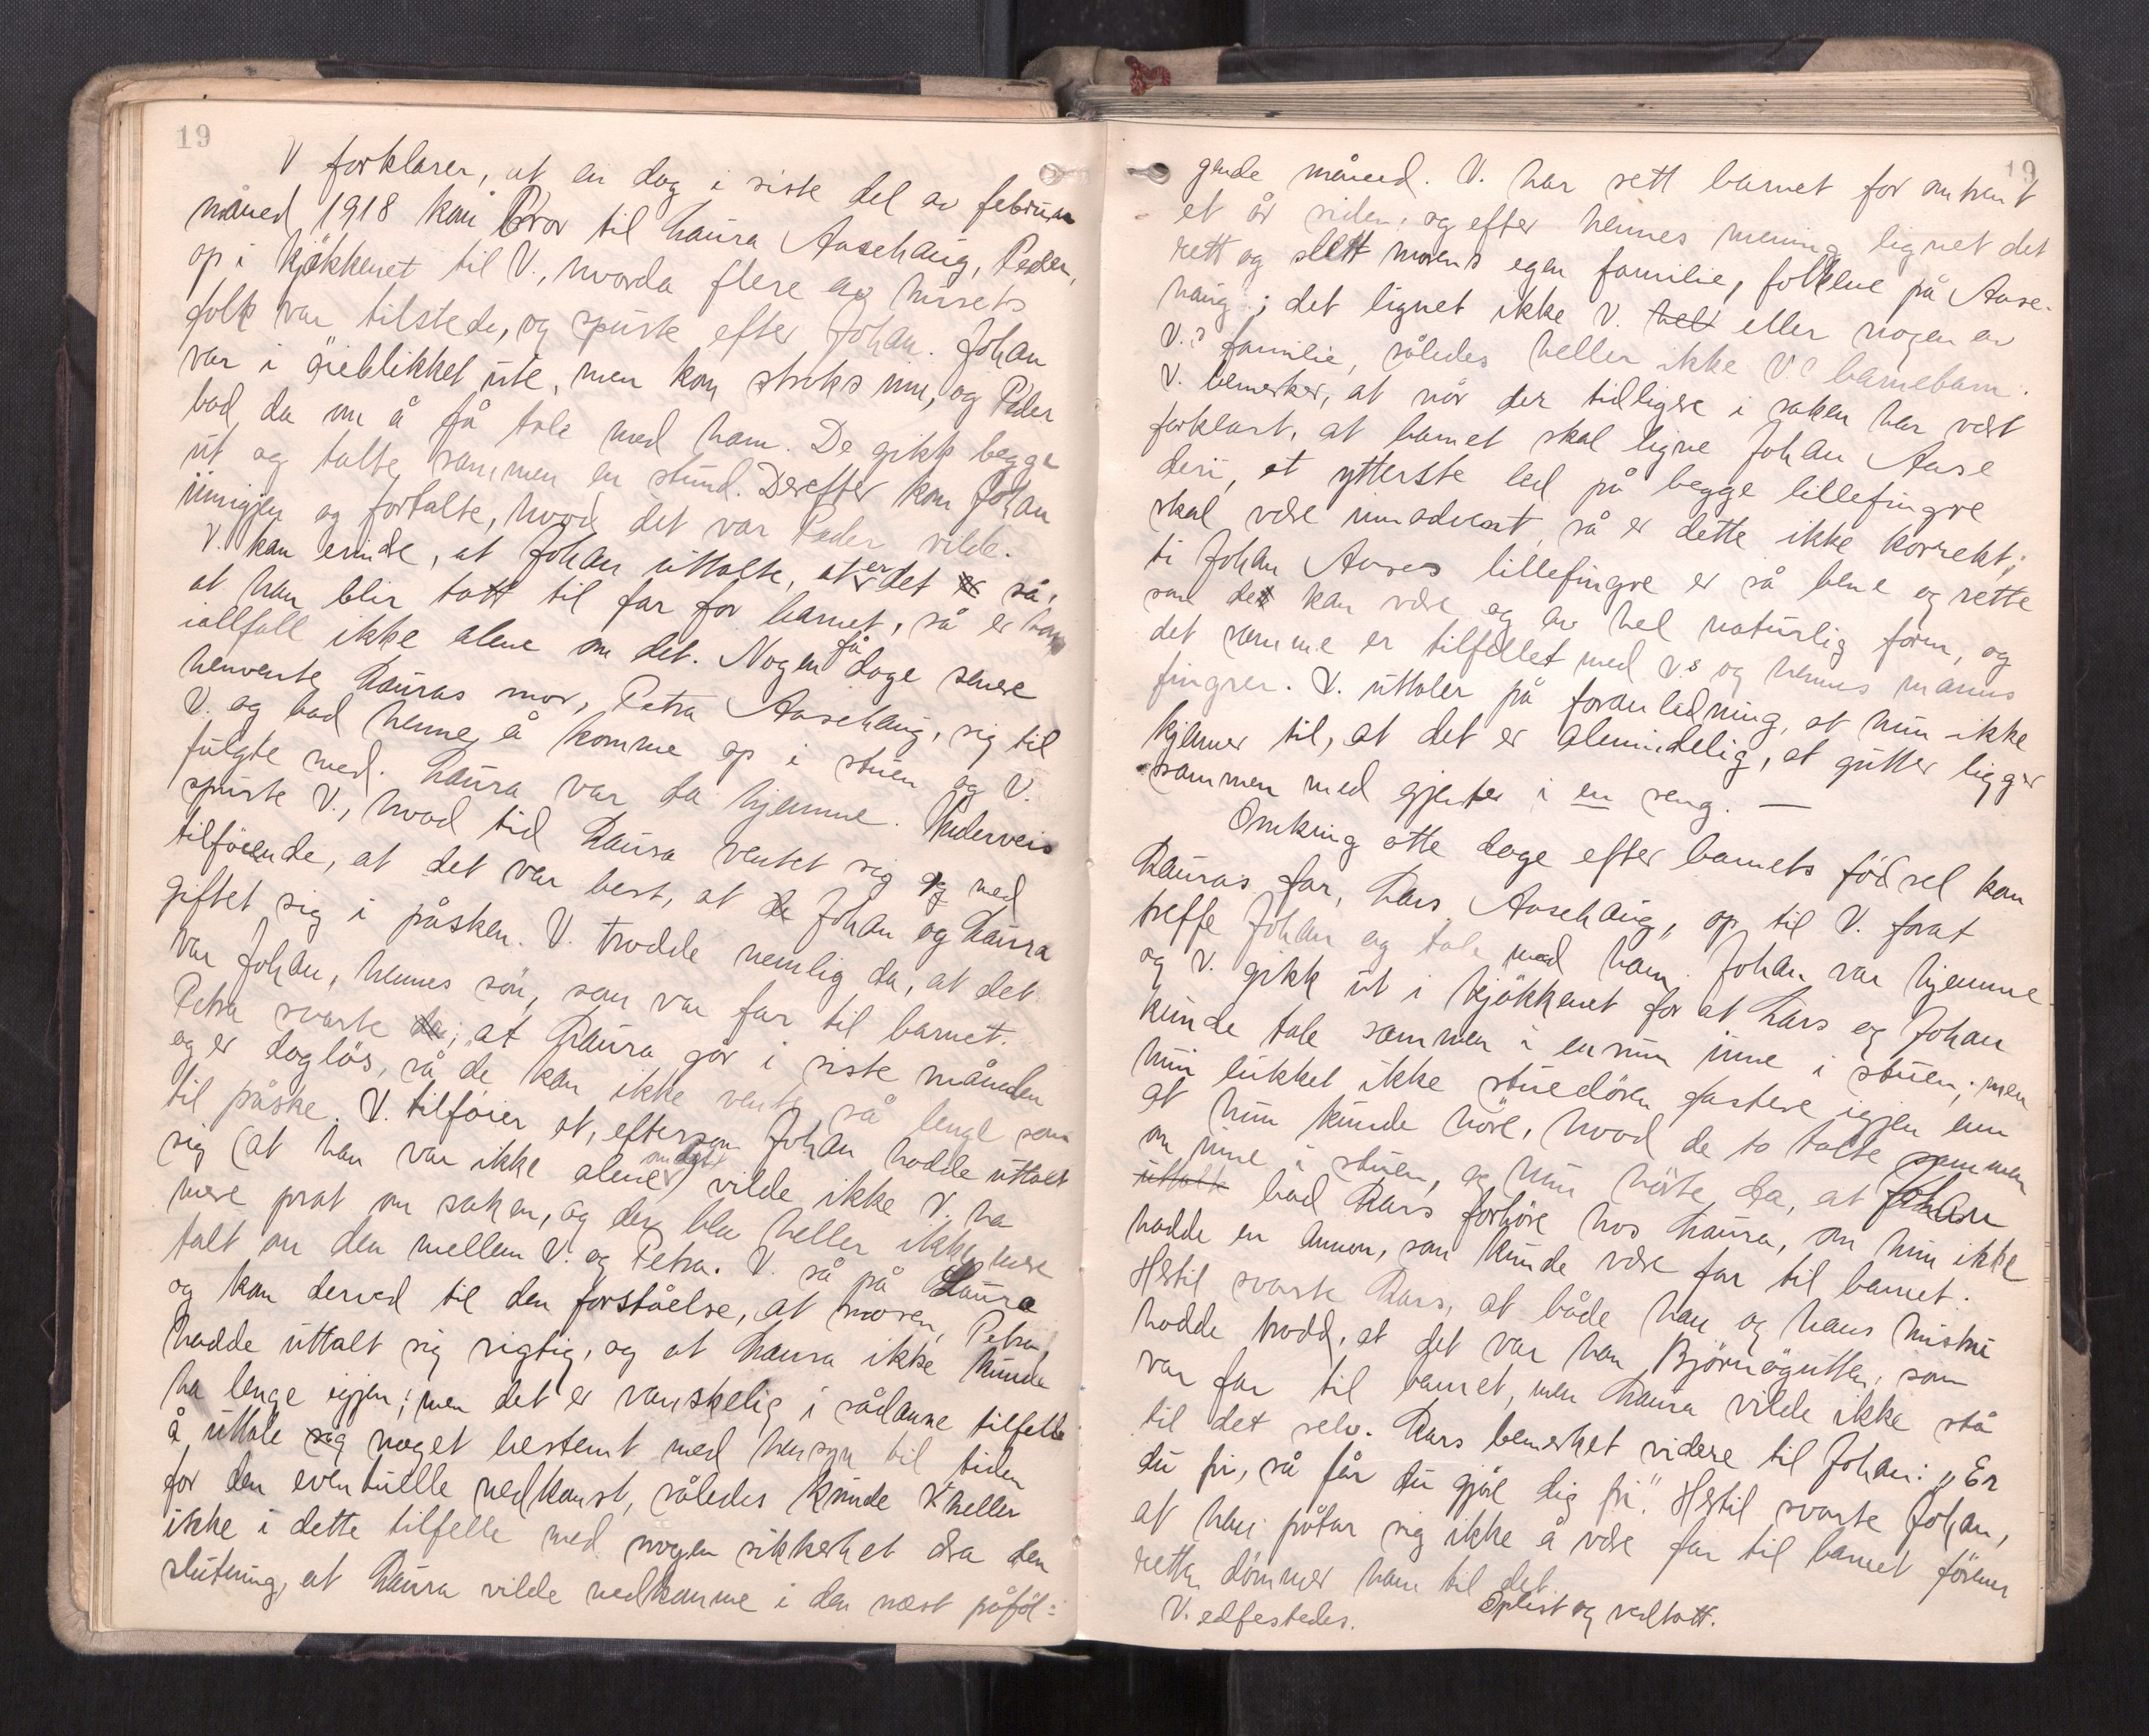 19
V forklarer, at en dag i siste del av februar
måned 1918 kom bror til Laura Aasehaug, Peder,
op i kjökkenet til V., hvorda flere av husets
folk var tilstede, og spurte efter Johan. Johan
var i öieblikket ute, men kom straks inn, og Peder
bad da om å få tale med ham. De gikk begge
ut og talte sammen en stund. Derefter kom Johan
innigjen og fortalte, hvad det var Peder vilde.
V. kan erindre, at Johan uttalte, at er det så,
at han blir tatt til far for barnet, så er han
iallfall ikke alene om det. Nogen få dage senere
henvente Lauras mor, Petra Aasehaug, sig til
V. og bad henne å komme op i stuen og V.
fulgte med. Laura var da hjemme. Underveis
spurte V., hvad tid Laura ventet sig og med
tilföiende, at det var best, at de Johan og Laura
giftet sig i påsken. V. trodde nemlig da, at det
var Johan, hennes sön, som var far til barnet.
Petra svarte da; at Laura går i siste måneden
og er daglös, så de kan ikke vente så lenge som
til påske. V. tilföier at, eftersom Johan hadde uttalt
sig (at han var ikke alene om det) vilde ikke V. ha
mere prat om saken, og der blev heller ikke mere
talt om den mellem V. og Petra. V. så på Laura
og kom derved til den forståelse, at moren, Petra,
hadde uttalt sig rigtig, og at Laura ikke kunde
ha lenge igjen; men det er vanskelig i sådanne tilfelle
å uttale sig noget bestemt med hensyn til tiden
for den eventuelle nedkomst, således kunde V heller
ikke i dette tilfelle med nogen sikkerhet dra den
slutning, at Laura vilde nedkomme i den næst påföl-
19
gende måned. V. har sett barnet for omtrent
et år siden, og efter hennes mening lignet det
rett og slett morens egen familie, folkene på Aase-
haug; det lignet ikke V. helt eller nogen av
V.s familie, således heller ikke V.s barnebarn.
V. bemerker, at når der tidligere i saken har vært
forklart, at barnet skal ligne Johan Aase
deri, at ytterste led på begge lillefingre
skal være innadvent, så er dette ikke korrekt;
ti Johan Aases lillefingre er så bene og rette
som det kan være og av hel naturlig form, og
det samme er tilfellet med V.s og hennes manns
fingrer. V. uttaler på foranledning, at hun ikke
kjenner til, at det er alemindelig, at gutter ligger
sammen med gjenter i en seng. —
Omkring otte dage efter barnets födsel kom
Lauras far, Lars Aasehaug, op til V. forat
treffe Johan og tale med ham. Johan var hjemme
og V. gikk ut i kjökkenet for at Lars og Johan
kunde tale sammen i enrum inne i stuen; men
hun lukket ikke stuedören fastere igjen enn
at hun kunde höre, hvad de to talte sammen
om inne i stuen, og hun hörte da, at Johan
uttalt bad Lars forhöre hos Laura, om hun ikke
hadde en annen, som kunde være far til barnet.
Hertil svarte Lars, at både han og hans hustru
hadde trodd, at det var han Björnögutten, som
var far til barnet, men Laura vilde ikke stå
til det selv. Lars bemerket videre til Johan: „Er
du fri, så får du gjöre dig fri". Hertil svarte Johan,
at han påtar sig ikke å være far til barnet förenn
retten dömmer ham til det.
V. edfestedes. Oplest og vedtatt.